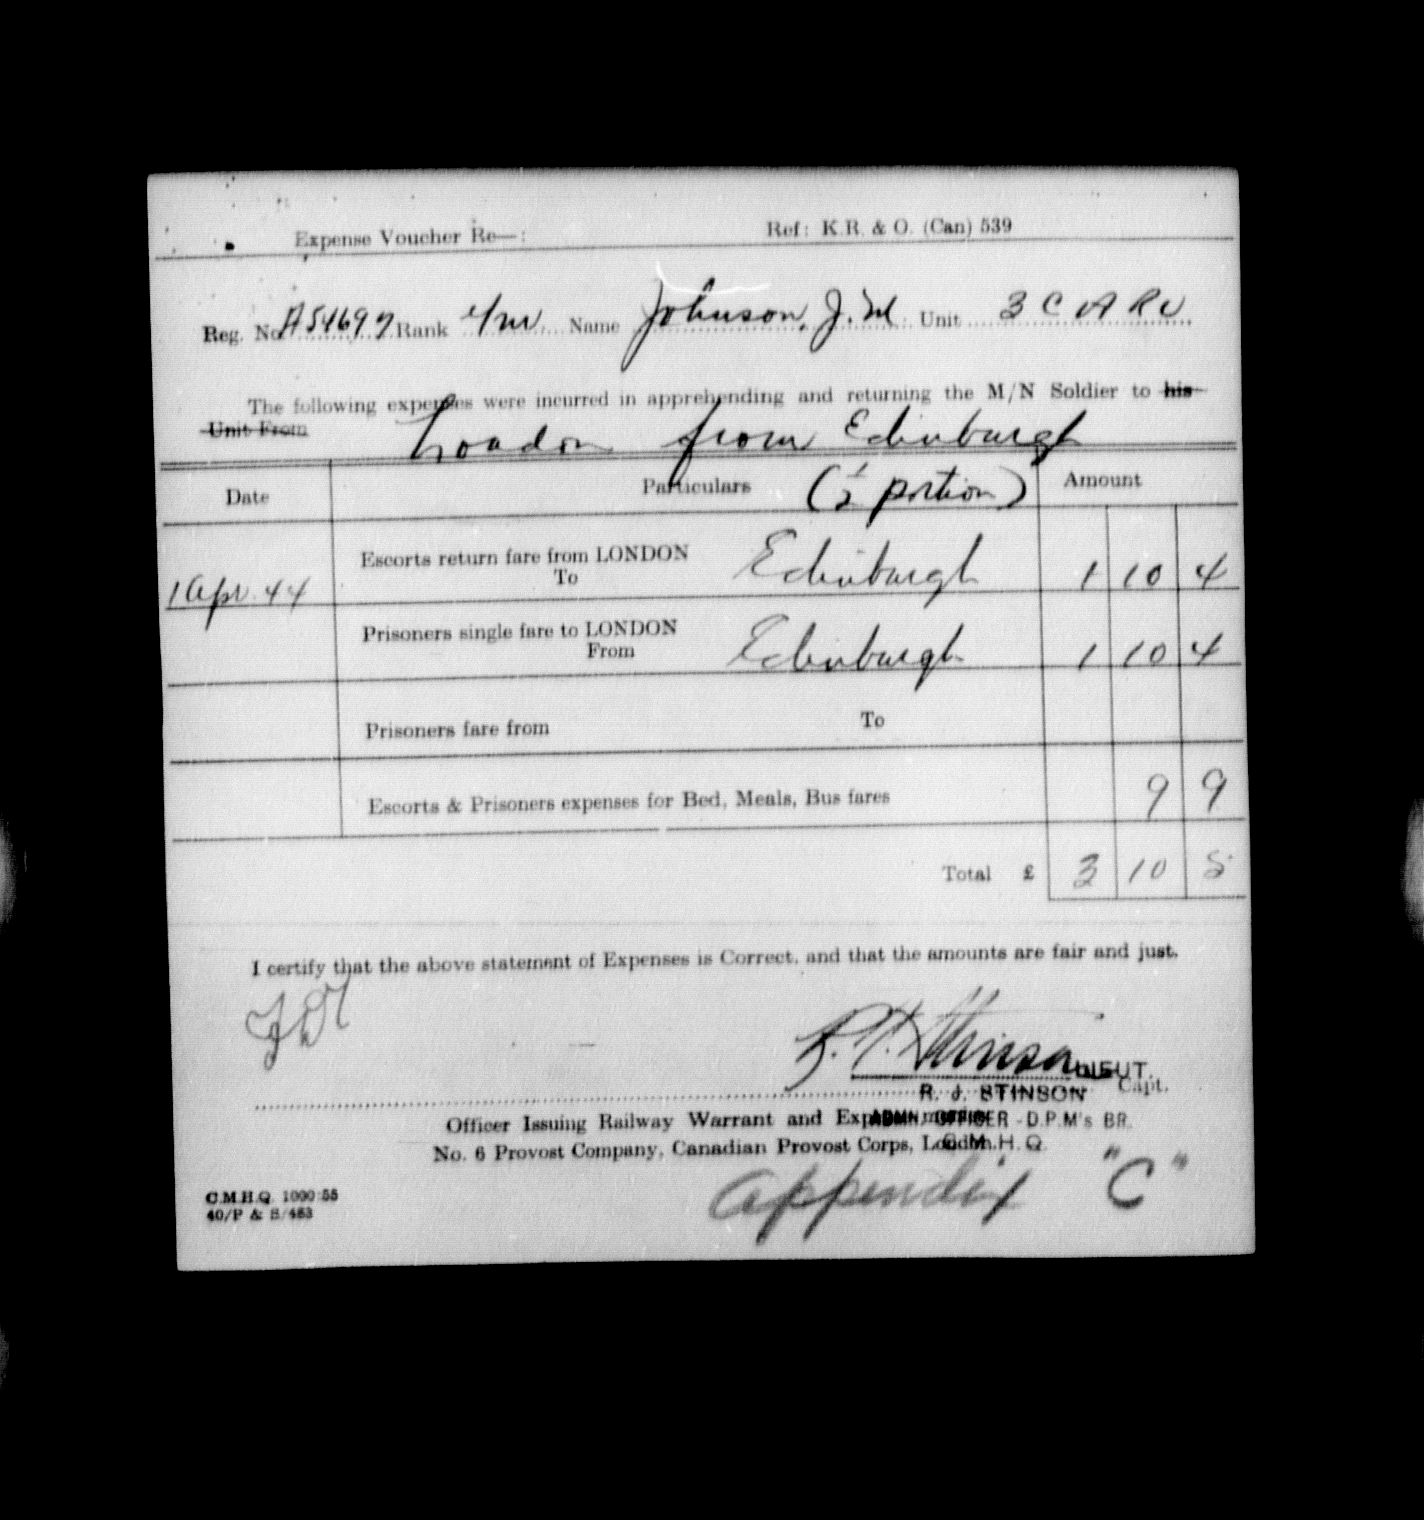 Expense Voucher Re—: Ref: K.R. & O. (Can) 539
Reg. No. A54697 Rank Name Johnson, J. M. Unit 3 C A R U
The following expenses were incurred in apprehending and returning the M/N Soldier to his
Unit From London from Edinburgh
Date Particulars (½ portion) Amount
Escorts return fare from LONDON Edinburgh 1 10 4
To
1 Apr. 44
Prisoners single fare to LONDON Edinburgh 1 10 4
From
Prisoners fare from To
Escorts & Prisoners expenses for Bed, Meals, Bus fares 9 9
Total £ 3 10 5
I certify that the above statement of Expenses is Correct, and that the amounts are fair and just.
Stinson
LIEUT.
Capt.
R. J. STINSON
Officer Issuing Railway Warrant and
ADMN. OFFICER - D.P.M's BR.
No. 6 Provost Company, Canadian Provost Corps, London.
C.M.H.Q.
Appendix "C"
C.M.H.Q. 1000/55
40/P & S/483